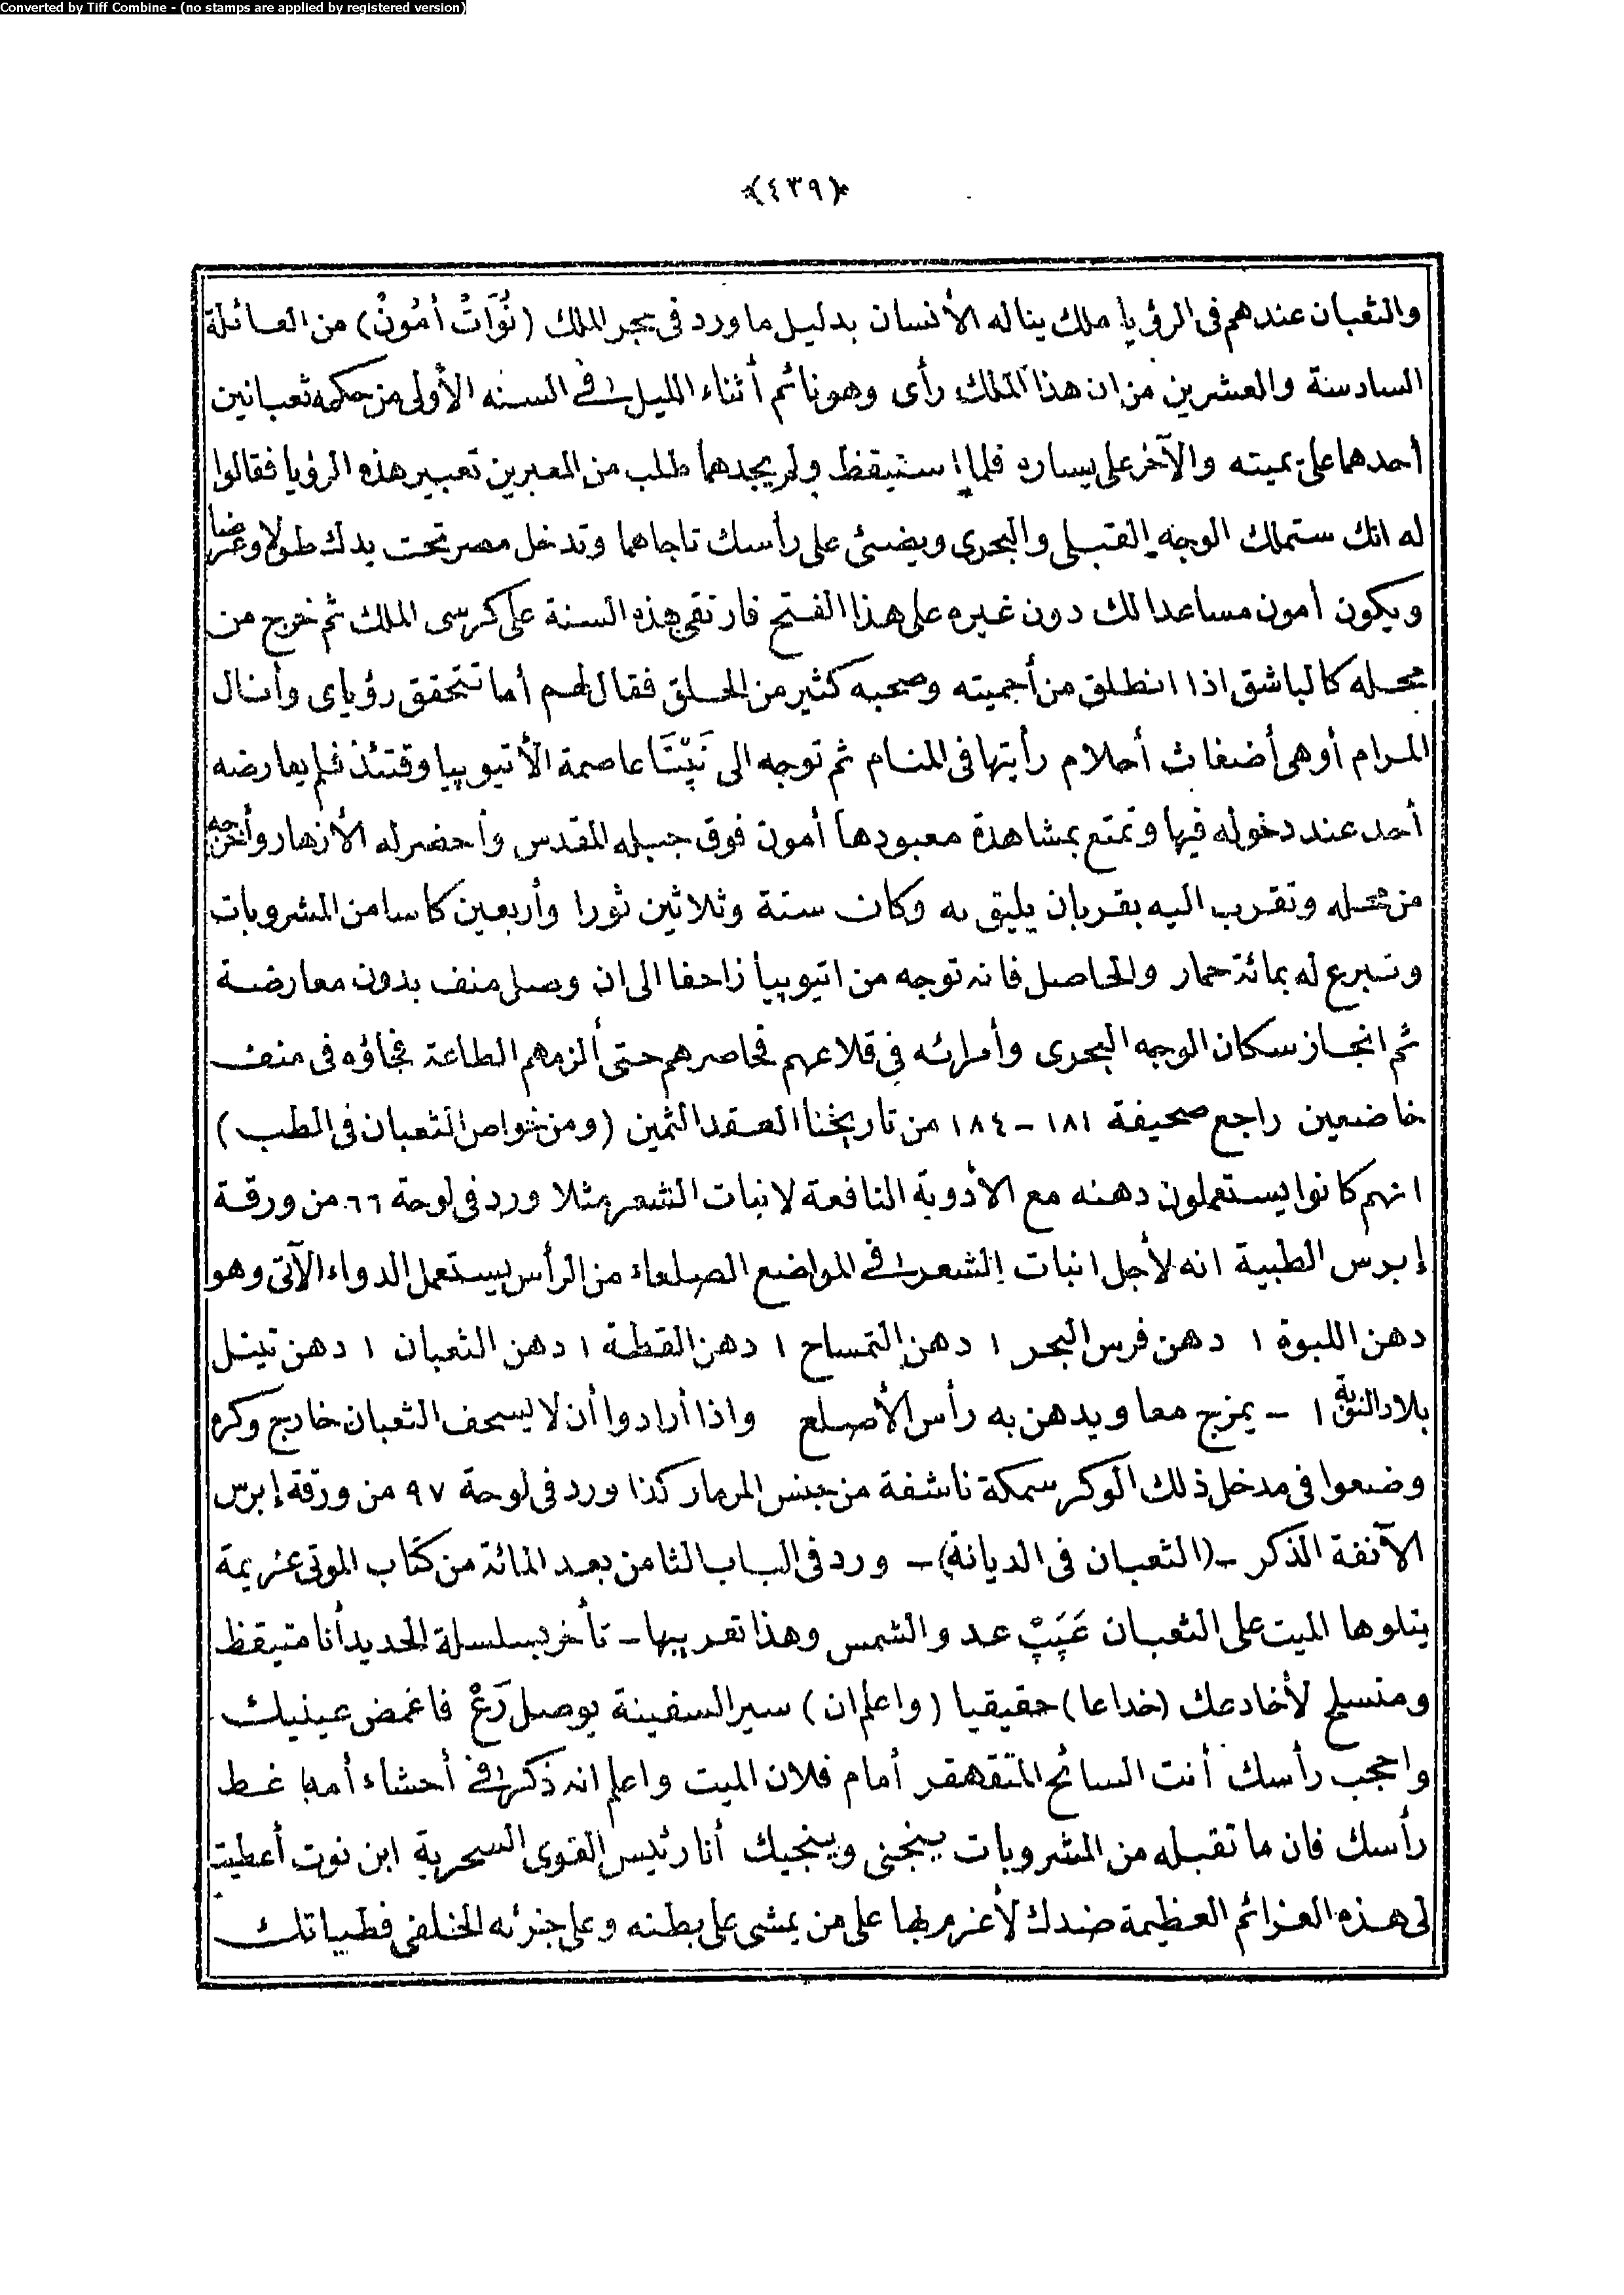 Converted by Tiff Combine - (no stamps are applied by registered version)
﴿٤٣٩﴾
والثعبان عندهم فى الرؤيا ملك يناله الأنسان بدليل ما ورد فى حجر الملك (نُوَاتْ أمُونْ) من العائلة
السادسة والعشرين من ان هذا الملك رأى وهو نائم أثناء الليل فى السنه الأولى من حكمه ثعبانين
أحدهما على يمينه والآخر على يساره فلما استيقظ ولم يجدهما طلب من المعبرين تعبير هذه الرؤيا فقالوا
له انك ستملك الوجه القبلى والبحرى ويضئ على رأسك تاجاهما وتدخل مصر تحت يدك طولا وعرضا
ويكون أمون مساعدا لك دون غيره على هذا الفتح فارتقى هذه السنة على كرسى الملك ثم خرج من
محله كالباشق اذا انطلق من أجميته وصحبه كثير من الخلق فقال لهم أما تتحقق رؤياى وأنال
المرام أو هى أضغاث أحلام رأيتها فى المنام ثم توجه الى نَپّتَا عاصمة الأتيوبيا وقتئذ فلم يعارضه
أحد عند دخوله فيها وتمتع بمشاهدة معبودها أمون فوق جبله المقدس وأحضر له الأزهار وأخرجه
من محله وتقرب اليه بقربان يليق به وكان ستة وثلاثين ثورا وأربعين كاسا من المشروبات
وتبرع له بمائة حمار والحاصل فانه توجه من اتيوبيا زاحفا الى ان وصل منف بدون معارضة
ثم انحاز سكان الوجه البحرى وأمرائه فى قلاعهم فحاصرهم حتى ألزمهم الطاعة فجاؤه فى منف
خاضعين راجع صحيفة ١٨١ - ١٨٤ من تاريخنا العقد الثمين (ومن خواص الثعبان فى الطب)
انهم كانوا يستعملون دهنه مع الأدوية النافعة لانبات الشعر مثلا ورد فى لوحة ٦٦ من ورقة
إبرس الطبية انه لأجل انبات الشعر فى المواضع الصلعاء من الرأس يستعمل الدواء الآتى وهو
دهن اللبوة ١ دهن فرس البحر ١ دهن التمساح ١ دهن القطة ١ دهن الثعبان ١ دهن تيتل
بلاد النوبة ١ - يمزج معا ويدهن به رأس الأصلع واذا أرادوا أن لا يسحف الثعبان خارج وكره
وضعوا فى مدخل ذلك الوكر سمكة ناشفة من جنس المرمار كذا ورد فى لوحة ٩٧ من ورقة إبرس
الآنفة الذكر -(الثعبان فى الديانة)- ورد فى الباب الثامن بعد المائة من كتاب الموتى عزيمة
يتلوها الميت على الثعبان عَپَپْ عدو الشمس وهذا تعريبها - تأخر بسلسلة الحديد أنا متيقظ
ومتسلح لأخادعك (خداعا) حقيقيا (واعلم ان) سير السفينة يوصل رَعْ فاغمض عينيك
واحجب رأسك أنت السائح المتقهقر أمام فلان الميت واعلم انه ذكر فى أحشاء أمه غط
رأسك فان ما تقبله من المشروبات ينجنى وينجيك أنا رئيس القوى السحرية ابن نوت أعطيت
لى هذه العزائم العظيمة ضدك لأعزم بها على من يمشى على بطنه وعلى جزئه الخلفى فطياتك